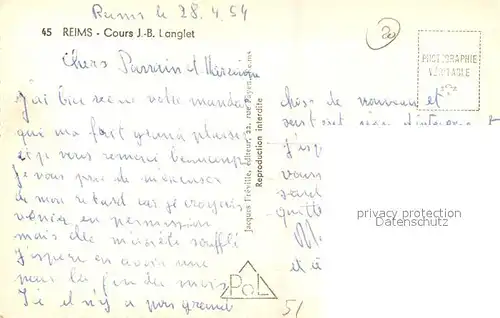 Reims le 28.4.54
20
45 REIMS - Cours J.-B. Langlet
PHOTOGRAPHIE
VÉRITABLE
Chers Parrain et Marraine
J'ai bien reçu votre mandat
qui m'a fait grand plaisir
et je vous remercie beaucoup
Je vous prie de m'excuser
de mon retard car je croyais
venir en permission
mais elle m'a été
J'espère en avoir une
pour la fin du mois
Ici il n'y a pas grand
Jacques Fréville, éditeur, 22, rue Payen, Reims
Reproduction interdite
chose de nouveau et
J'esp
vous
quitte
et à
privacy protection
Datenschutz
PoL
51